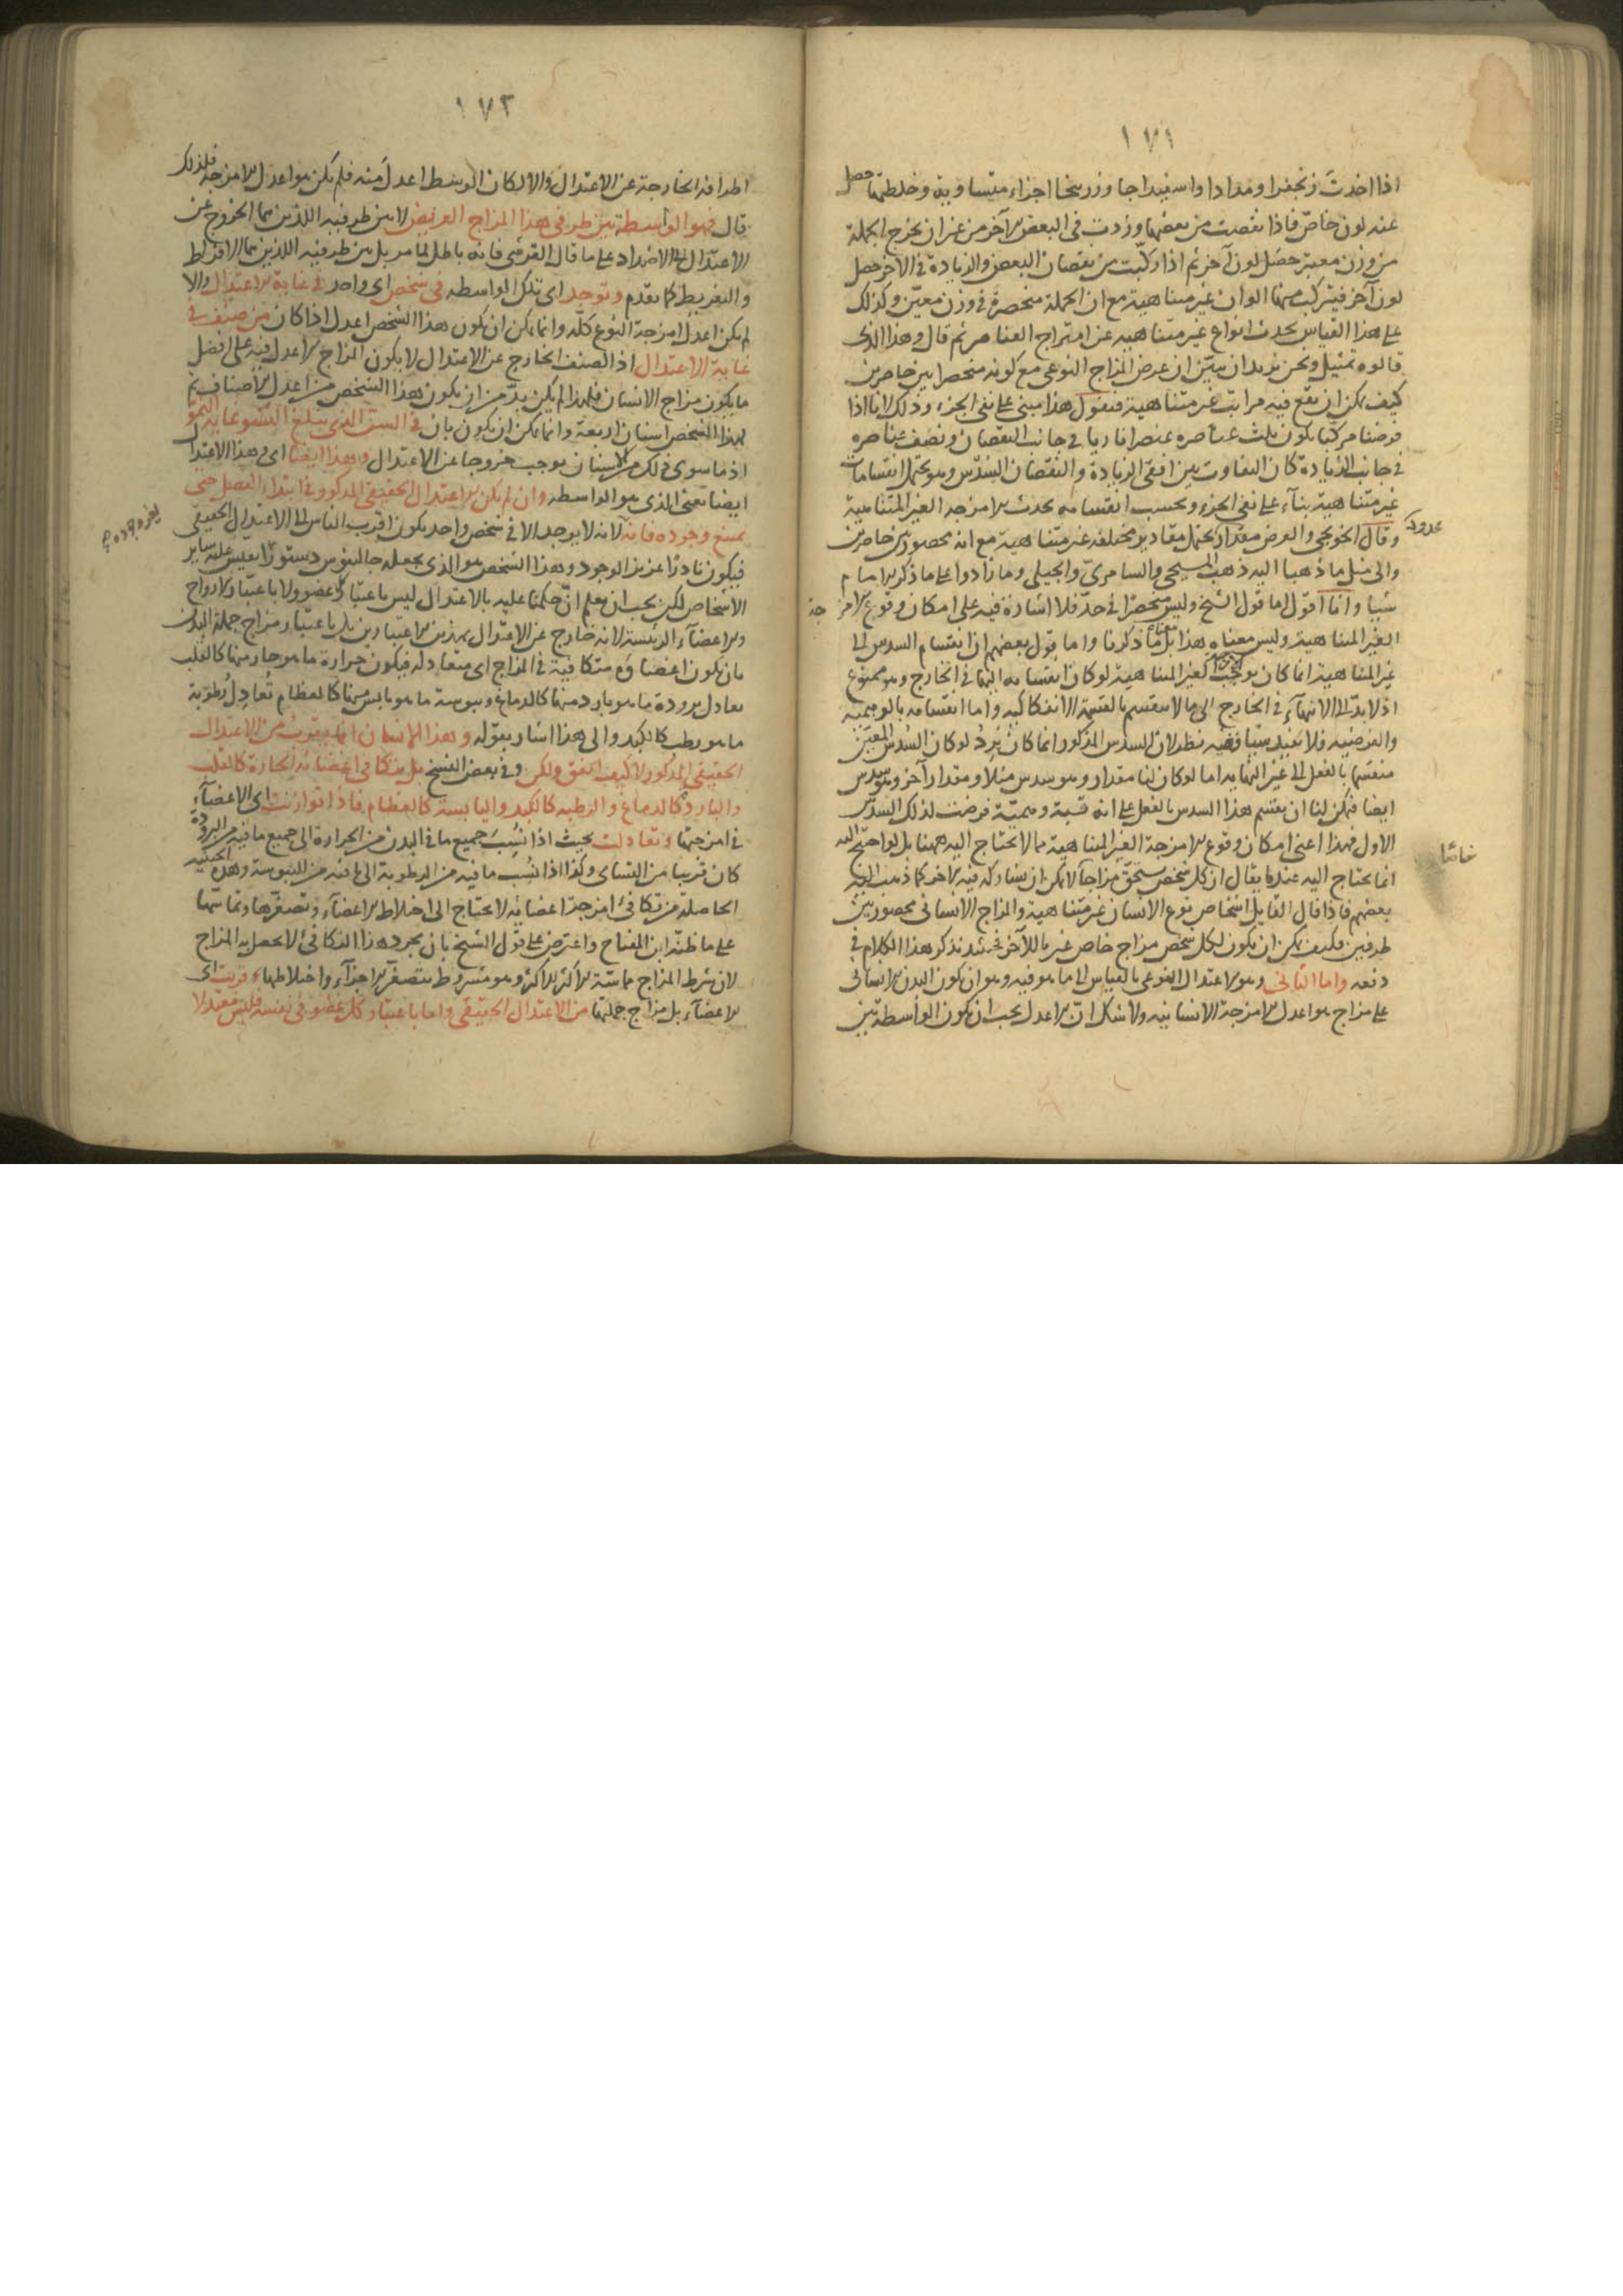 ١٧١
اذا اخذت زنجفرا ومدادا واسفيداجا وزرنيخا اجزاء متساوية وخلطتها حصل
عنه لون خاص فاذا نقصت من بعضها وزدت في البعض الآخر من غير ان يخرج الجملة
من وزن معين حصل لون آخر ثم اذا ركبت من نقصان البعض والزيادة في الآخر حصل
لون آخر فيتركب منها الوان غير متناهية مع ان الجملة منحصرة في وزن معين وكذلك
على هذا القياس يحدث انواع غير متناهية عن امتزاج العناصر ثم قال وهذا الذي
قالوه تمثيل ونحن نريد ان نبين ان عرض المزاج النوعي مع كونه منحصرا بين حاصرين
كيف يمكن ان يقع فيه مراتب غير متناهية فنقول هذا مبني على نفي الجزء وذلك لانا اذا
فرضنا مركبا يكون ثلث عناصره عنصرا ناريا في جانب النقصان ونصف عناصره
في جانب الزيادة كان التفاوت بين افقي الزيادة والنقصان السدس وهو يحتمل انقسامات
غير متناهية بناء على نفي الجزء وبحسب انقسامه يحدث الامزجة الغير المتناهية
وقال الخونجي والعرض مقدار يحتمل مقادير مختلفة غير متناهية مع انه محصور بين حاصرين
والى مثل ما ذهبا اليه ذهب المسيحي والسامري والجيلي وما زادوا على ما ذكر الامام
شيا وانا اقول اما قول الشيخ وليس منحصرا في حد فلا اشارة فيه على امكان وقوع الامزجة
الغير المتناهية وليس معناه هذا بل ما ذكرنا واما قول بعضهم ان انقسام السدس الى
غير المتناهية انما كان يوجب الغير المتناهية لو كان انقسامه اليها في الخارج وهو ممنوع
اذ لا بد الى الانتهاء في الخارج الى ما لا ينقسم بالقسمة الانفكاكية واما انقسامه بالوهمية
والفرضية فلا يفيد شيا ففيه نظر لان السدس المذكور انما كان يرد لو كان السدس المعين
منقسما بالفعل الى غير النهاية اما لو كان لنا مقدار وهو سدس مثلا ومقدار آخر وهو سدس
ايضا فيمكن لنا ان نقسم هذا السدس بالفعل على انه قسمة وهمية فرضت لذلك السدس
الاول فهذا اعني امكان وقوع الامزجة الغير المتناهية مما لا يحتاج اليه ههنا بل لو احتيج اليه
انما يحتاج اليه عندما يقال ان كل شخص يستحق مزاجا لا يمكن ان يشاركه فيه الآخر كما ذهب اليه
بعضهم فاذا قال القايل اشخاص نوع الانسان غير متناهية والمزاج الانساني محصور بين
طرفين فكيف يمكن ان يكون لكل شخص مزاج خاص غير ما للآخر فحينئذ نذكر هذا الكلام في
دفعه واما الثاني وهو الاعتدال النوعي بالقياس الى ما هو فيه وهو ان يكون البدن الانساني
على مزاج هو اعدل الامزجة الانسانية ولا شك ان الاعدل يجب ان يكون الواسطة بين
١٧٢
اطرافه الخارجة عن الاعتدال والا لكان الوسط اعدل منه فلم يكن هو اعدل الامزجة فلذلك
قال فهو الواسطة بين طرفي هذا المزاج العريض لا بين طرفيه اللذين هما الخروج عن
الاعتدال الى الاضداد على ما قال القرشي فانه باطل لما مر بل بين طرفيه اللذين هما الافراط
والتفريط كما تقدم وتوجد اى تلك الواسطه في شخص اى واحد في غاية الاعتدال والا
لم يكن اعدل امزجة النوع كله وانما يمكن ان يكون هذا الشخص اعدل اذا كان من صنف في
غاية الاعتدال اذ الصنف الخارج عن الاعتدال لا يكون المزاج الاعدل فيه على افضل
ما يكون مزاج الانسان فلهذا لم يكن بد من ان يكون هذا الشخص من اعدل الاصناف ثم
لهذا الشخص اسنان اربعة وانما يمكن ان يكون بان في السن الذي يبلغ النشو غاية النمو
اذ ما سوى ذلك من الاسنان يوجب خروجا عن الاعتدال وهذا ايضا اى هذا الاعتدال
ايضا يعني الذي هو الواسطه وان لم يكن الاعتدال الحقيقي المذكور في ابتداء الفصل حتى
يمتنع وجوده فانه لانه لا يوجد الا في شخص واحد يكون اقرب الناس الى الاعتدال الحقيقي
فيكون نادرا عزيز الوجود وهذا الشخص هو الذي يجعله جالينوس دستورا يقيس عليه ساير
الاشخاص لكن يجب ان يعلم ان حكمنا عليه بالاعتدال ليس باعتبار كل عضو ولا باعتبار الارواح
والاعضاء الرئيسة لانه خارج عن الاعتدال بهذين الاعتبارين بل باعتبار مزاج جملة البدن
بان يكون اعضاوه متكافية في المزاج اى متعادلة فيكون حرارة ما هو حار منها كالقلب
يعادل برودة ما هو بارد منها كالدماغ ويبوسة ما هو يابس منها كالعظام تعادل رطوبة
ما هو رطب كالكبد والى هذا اشار بقوله وهذا الانسان انما يقرب من الاعتدال
الحقيقي المذكور لا كيف اتفق ولكن وفي بعض النسخ بل يتكافى اعضائه الحارة كالقلب
والباردة كالدماغ والرطبه كالكبد واليابسة كالعظام فاذا توازنت اى الاعضاء
في امزجتها وتعادلت بحيث اذا نسب جميع ما في البدن من الحرارة الى جميع ما فيه من البرودة
كان قريبا من التساى وكذا اذا نسب ما فيه من الرطوبة الى ما فيه من اليبوسة وهذه الحيثية
الحاصلة من تكافئ امزجة اعضائه لا يحتاج الى اختلاط الاعضاء وتصغرها وتماسها
على ما ظنه ابن المفتاح واعترض على قول الشيخ بان بمجرد هذا التكافئ لا يحصل به المزاج
لان شرط المزاج مماسة الاكثر للاكثر وهو مشروط بتصغر الاجزاء واختلاطها قربت اى
الاعضاء بل مزاج جملتها من الاعتدال الحقيقي واما باعتبار كل عضو في نفسه فليس معتدلا